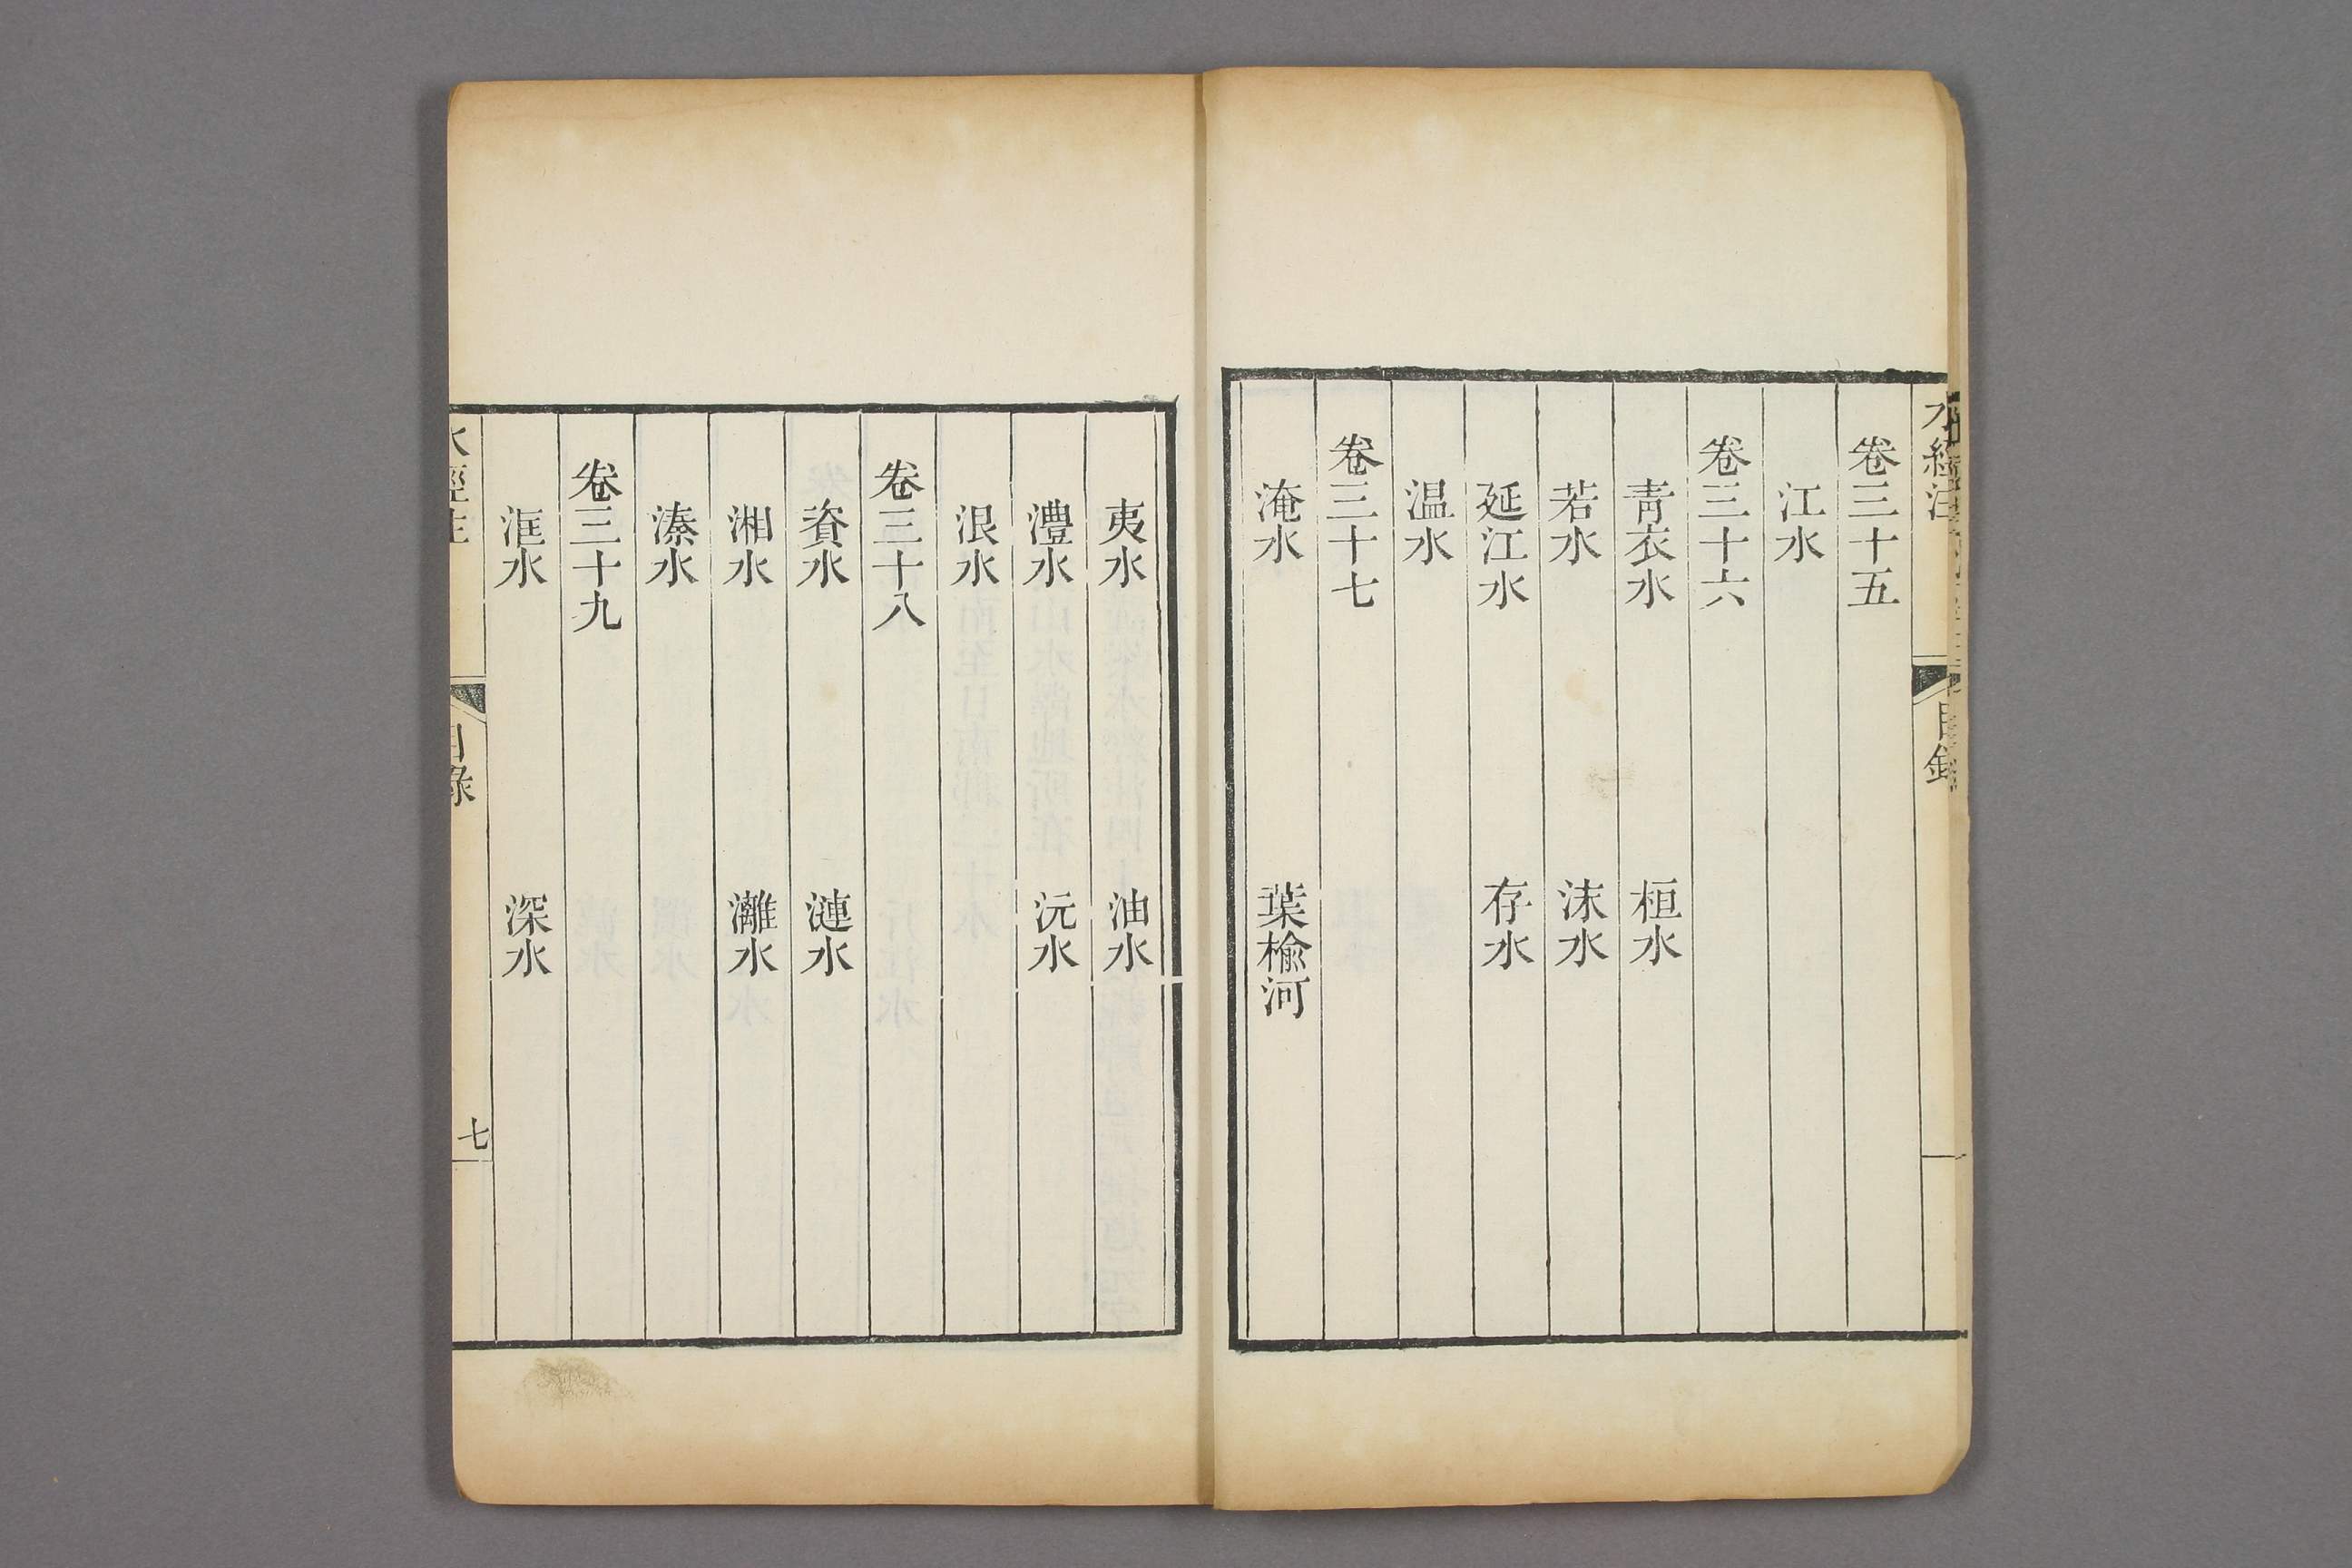 水經注 目錄
卷三十五
江水
卷三十六
青衣水 桓水
若水 沫水
延江水 存水
温水
卷三十七
淹水 葉榆河
夷水 油水
澧水 沅水
泿水
卷三十八
資水 漣水
湘水 灕水
溱水
卷三十九
洭水 深水
水經注 目錄 七